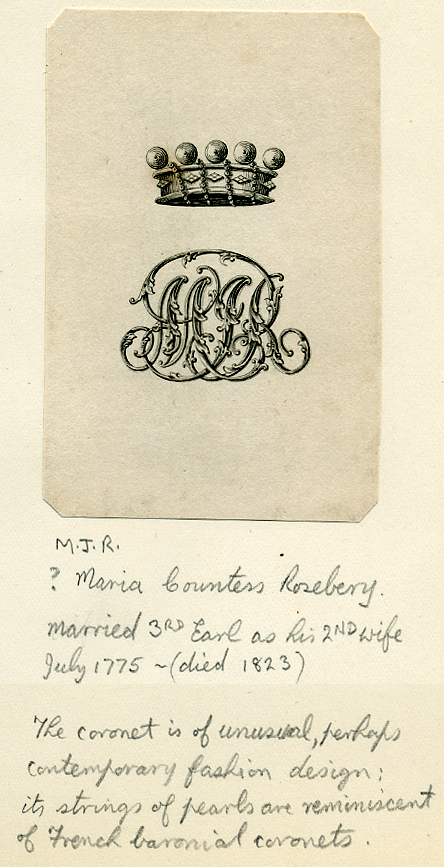 MJR
M.J.R.
? Maria Countess Rosebery.
married 3RD Earl as his 2ND wife
July 1775 ~ (died 1823)
The coronet is of unusual, perhaps
contemporary fashion design;
its strings of pearls are reminiscent
of French baronial coronets.